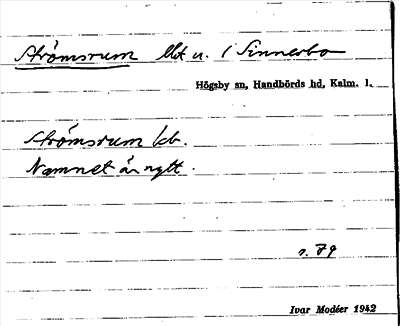 Strömsrum lht u. 1 Sinnerbo
Högsby sn, Handbörds hd, Kalm. l.
Strömsrum kb.
Namnet är nytt.
s. 79
Ivar Modéer 1942